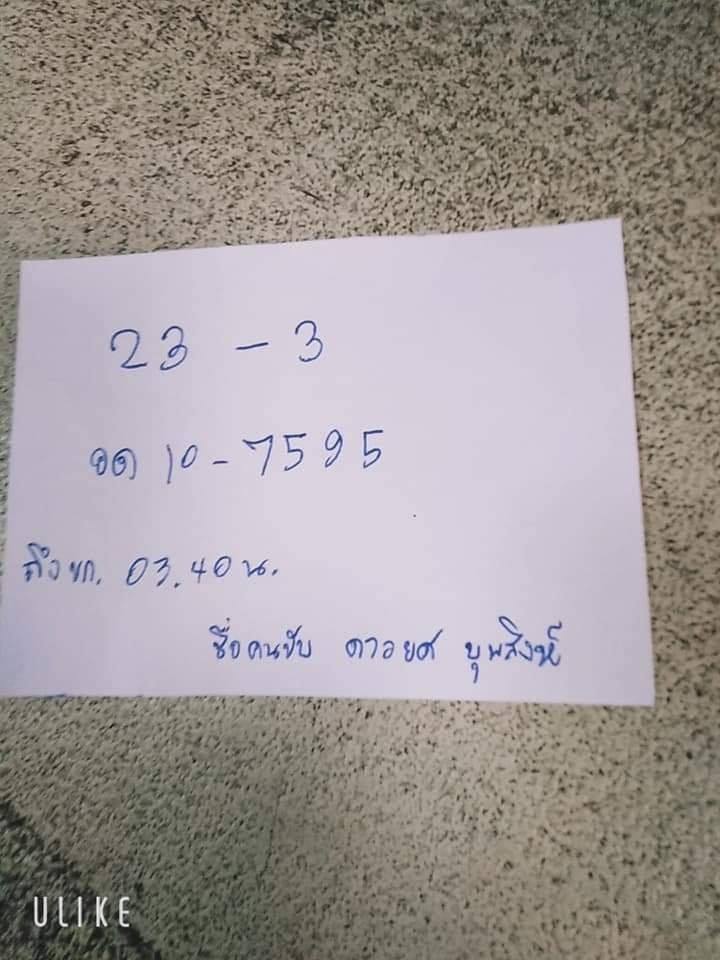 23 - 3
อด 10 - 7595
ถึง ขก. 03.40 น.
ชื่อคนขับ ดาวยศ บุพสิงห์
ULIKE